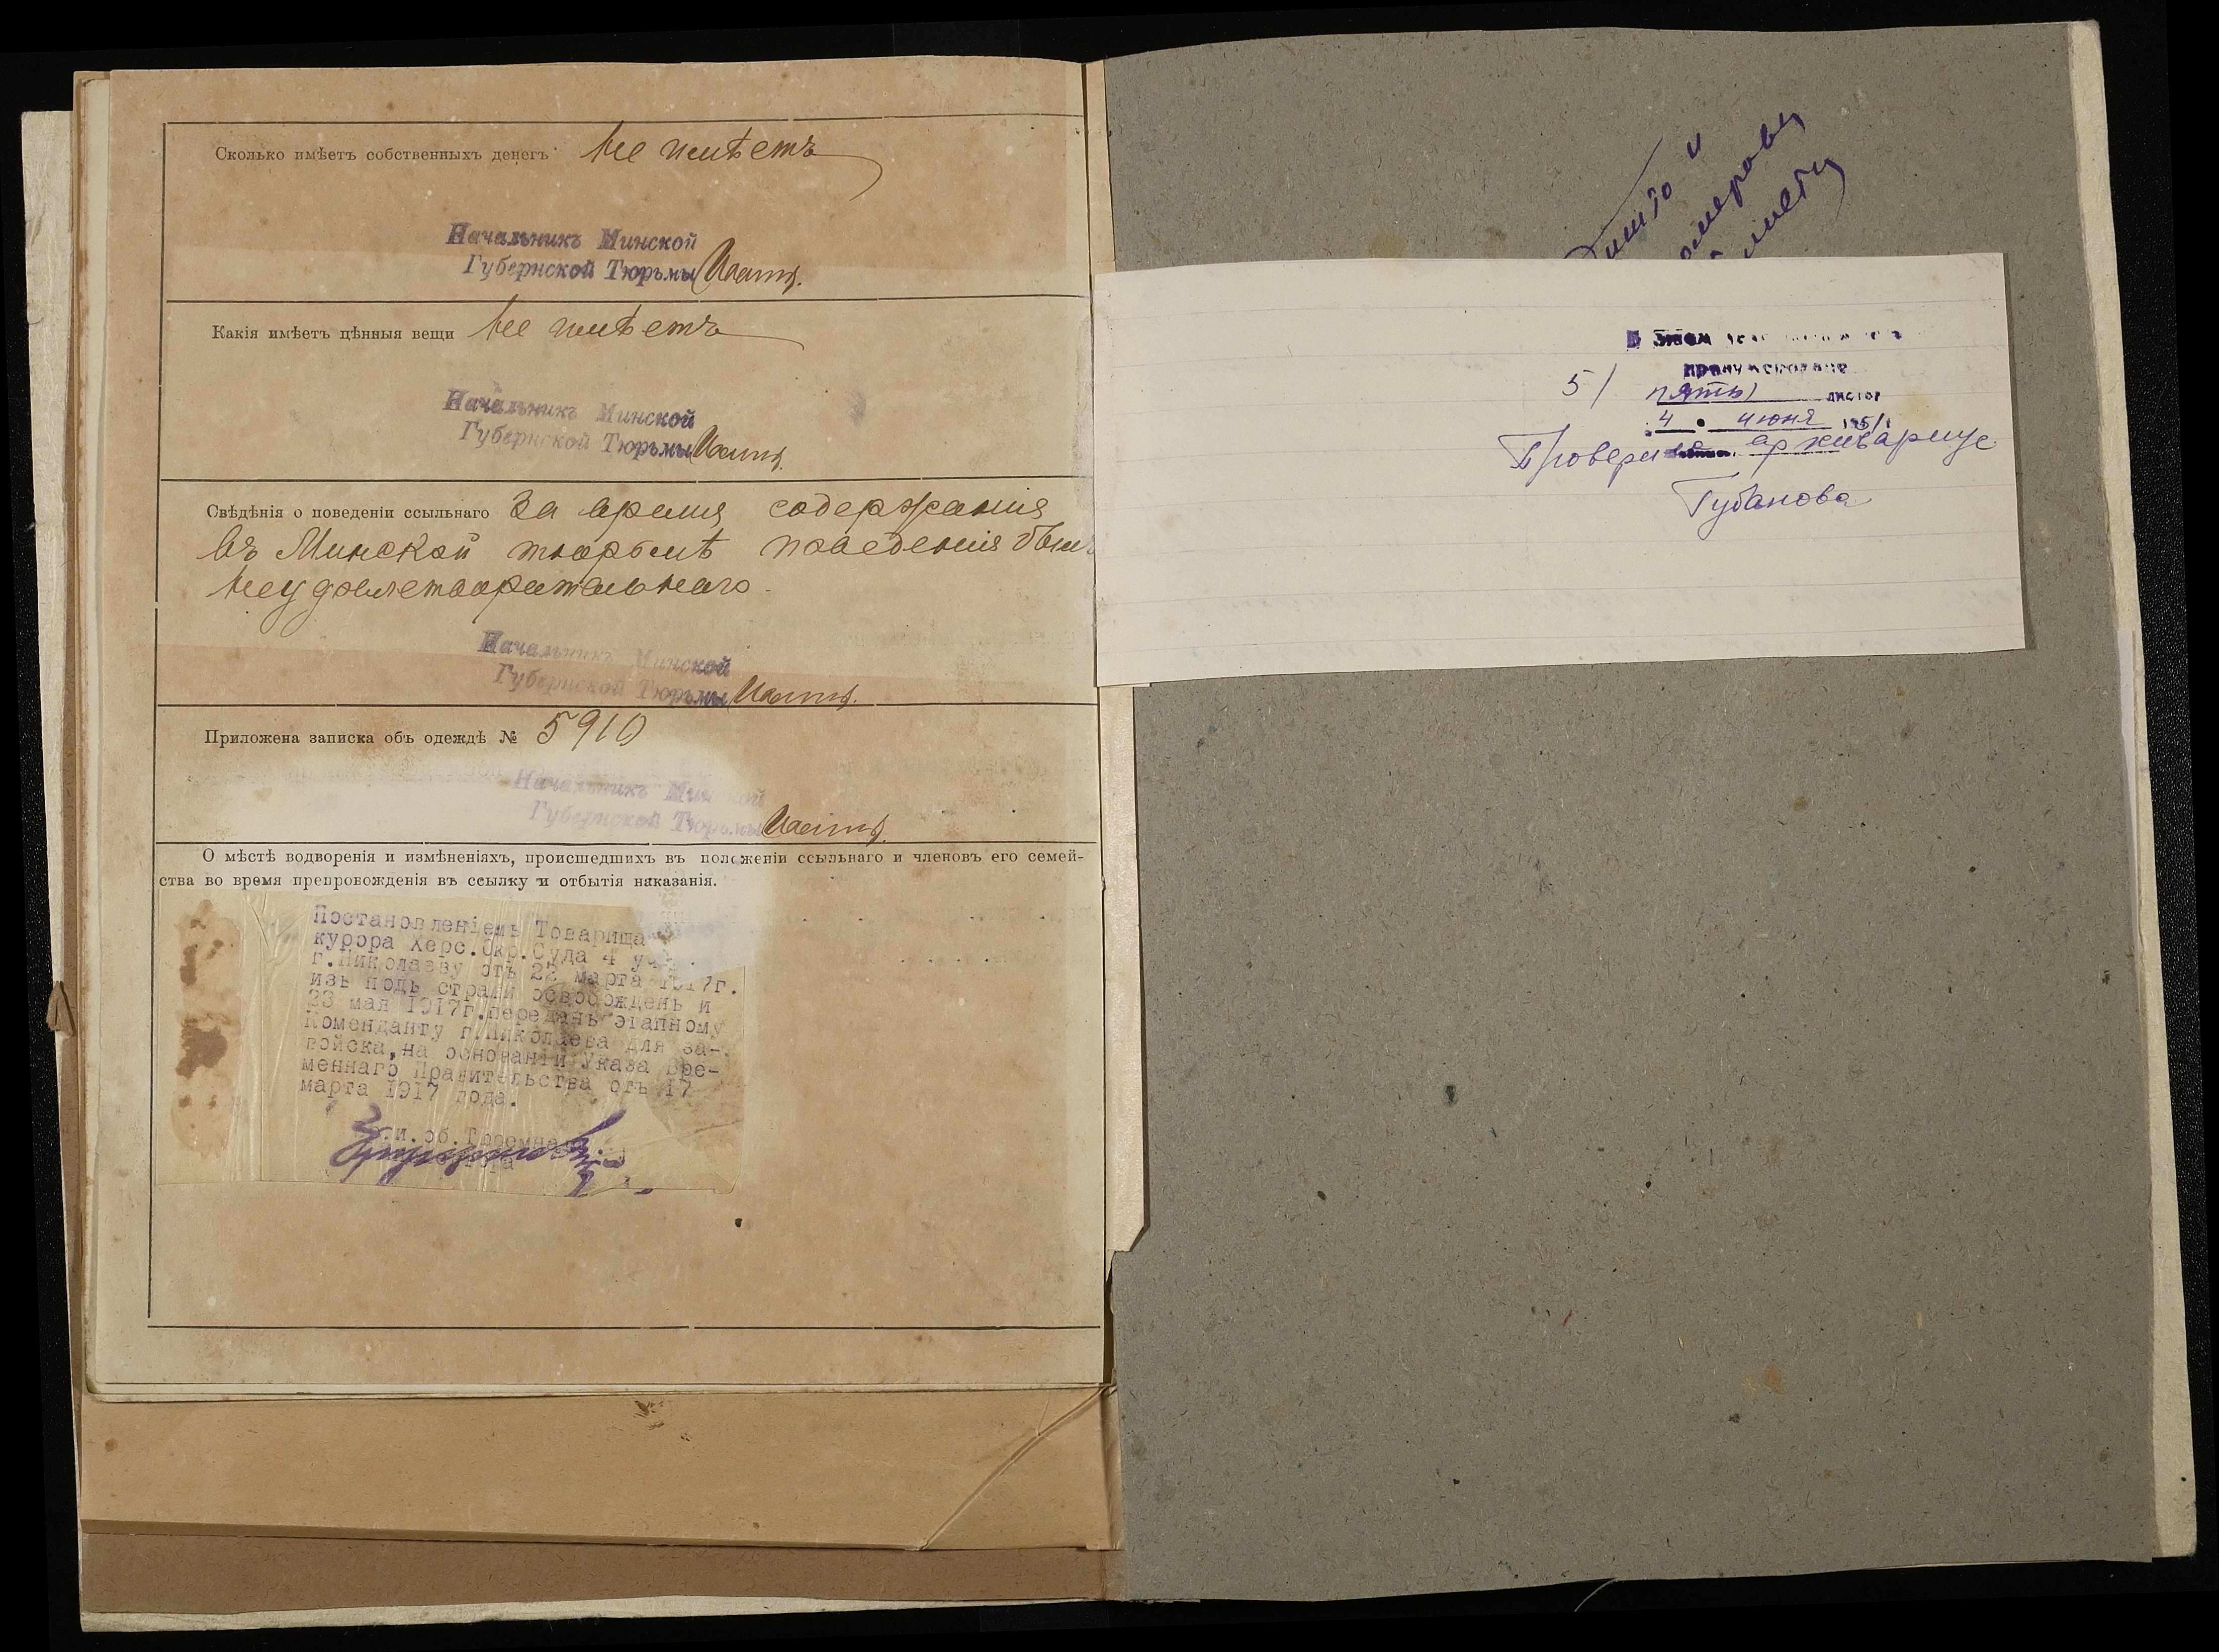 Сколько имѣетъ собственныхъ денегъ не имѣетъ
Начальникъ Минской
Губернской Тюрьмы
Какія имѣетъ цѣнныя вещи не имѣетъ
Начальникъ Минской
Губернской Тюрьмы
Свѣдѣнія о поведеніи ссыльнаго За время содержанія
въ Минской тюрьмѣ поведенія былъ
неудовлетворительнаго.
Начальникъ Минской
Губернской Тюрьмы
Приложена записка объ одеждѣ № 5910
Начальникъ Минской
Губернской Тюрьмы
О мѣстѣ водворенія и измѣненіяхъ, происшедшихъ въ положеніи ссыльнаго и членовъ его семей-
ства во время препровожденія въ ссылку и отбытія наказанія.
Постановленіемъ Товарища
курора Херс.Окр.Суда 4
г.Николаеву отъ 22 марта 1917г.
изъ подъ стражи освобожденъ и
23 мая 1917г.переданъ этапному
Коменданту г.Николаева для за-
войска,на основаніи Указа Вре-
меннаго Правительства отъ 17
марта 1917 года.
и
5/ пять/ листов
4 июня 1951
Провери архивариус
Губанова